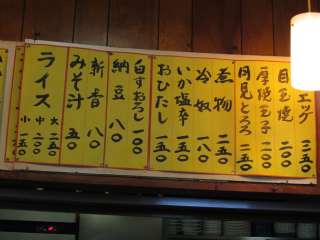 エッグ 三五〇
目玉焼 二〇〇
厚焼玉子 二〇〇
月見とろろ 二五〇
煮物 二五〇
冷奴 一八〇
いか塩辛 一五〇
おひたし 一五〇
白すおろし 一〇〇
納豆 八〇
新香 八〇
みそ汁 五〇
ライス 大 二五〇
中 二〇〇
小 一五〇